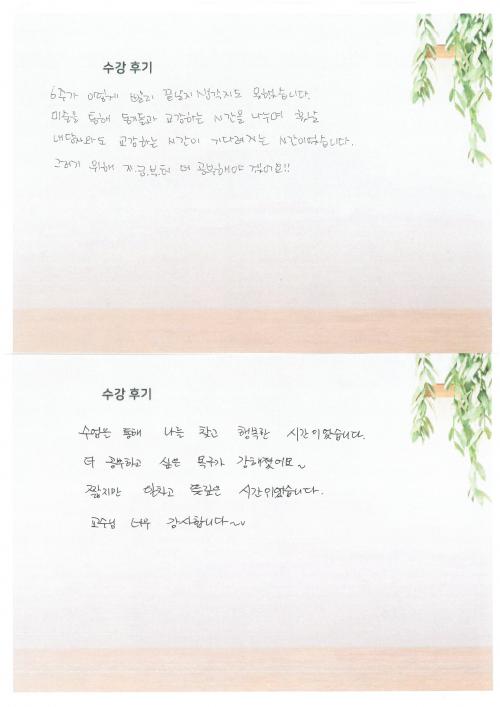 수강 후기
6주가 이렇게 빨리 끝날지 생각지도 못했습니다.
미술을 통해 동기들과 교감하는 시간을 나누며 훗날
내담자와도 교감하는 시간이 기다려지는 시간이였습니다.
그러기 위해 지금부터 더 공부해야 겠어요!!
수강 후기
수업을 통해 나를 찾고 행복한 시간이었습니다.
더 공부하고 싶은 욕구가 강해졌어요~
짧지만 알차고 뜻깊은 시간이었습니다.
교수님 너무 감사합니다~